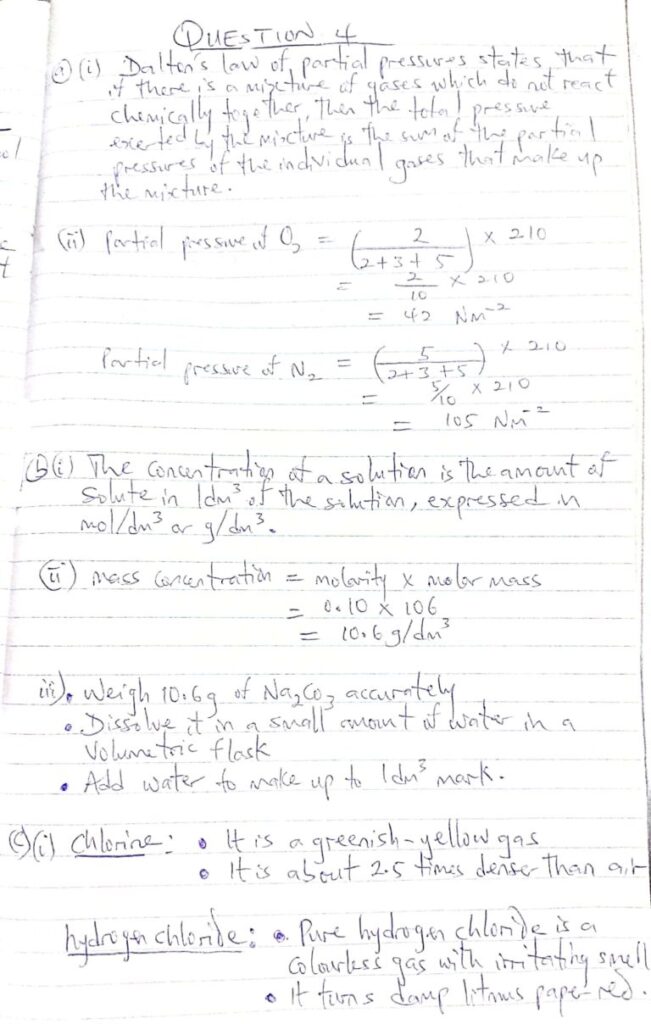 QUESTION 4
a (i) Dalton's law of partial pressures states that
if there is a mixture of gases which do not react
chemically together, then the total pressure
exerted by the mixture is the sum of the partial
pressures of the individual gases that make up
the mixture.
(ii) Partial pressure of O₂ = (2/(2+3+5)) × 210
= 2/10 × 210
= 42 Nm⁻²
Partial pressure of N₂ = (5/(2+3+5)) × 210
= 5/10 × 210
= 105 Nm⁻²
(b)(i) The concentration of a solution is the amount of
solute in 1dm³ of the solution, expressed in
mol/dm³ or g/dm³.
(ii) mass concentration = molarity × molar mass
= 0.10 × 106
= 10.6 g/dm³
iii). • Weigh 10.6g of Na₂CO₃ accurately
• Dissolve it in a small amount of water in a
Volumetric flask
• Add water to make up to 1dm³ mark.
(c)(i) Chlorine: • It is a greenish-yellow gas
• It is about 2.5 times denser than air
hydrogen chloride: • Pure hydrogen chloride is a
colourless gas with irritating smell
• It turns damp litmus paper red.